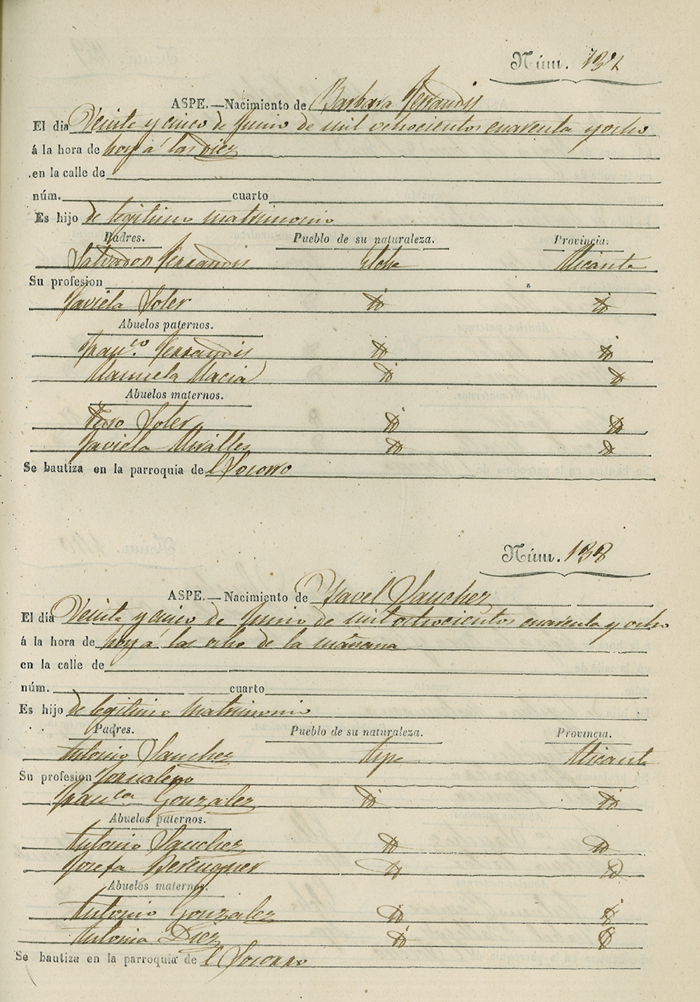 Núm. 132
ASPE.—Nacimiento de Barbara Ferrandis
El dia Veinte y cinco de Junio de mil ochocientos cuarenta y ocho
á la hora de hoy á las diez
en la calle de
núm. cuarto
Es hijo de legitimo matrimonio
Padres. Pueblo de su naturaleza. Provincia.
Salvador Ferrandis Elche Alicante
Su profesion
Javiela Soler
Abuelos paternos.
Franco. Ferrandis
Manuela Macia
Abuelos maternos.
Soler
Javiela Miralles
Se bautiza en la parroquia de el Socorro
Núm. 133
ASPE.—Nacimiento de Ysavel Sanchez
El dia Veinte y cinco de Junio de mil ochocientos cuarenta y ocho
á la hora de hoy á las ocho de la mañana
en la calle de
núm. cuarto
Es hijo de legitimo matrimonio
Padres. Pueblo de su naturaleza. Provincia.
Antonio Sanchez Aspe Alicante
Su profesion Jornalero
Franca Gonzalez
Abuelos paternos.
Antonio Sanchez
Josefa Berenguer
Abuelos maternos.
Antonio Gonzalez
Antonia Diez
Se bautiza en la parroquia de el Socorro